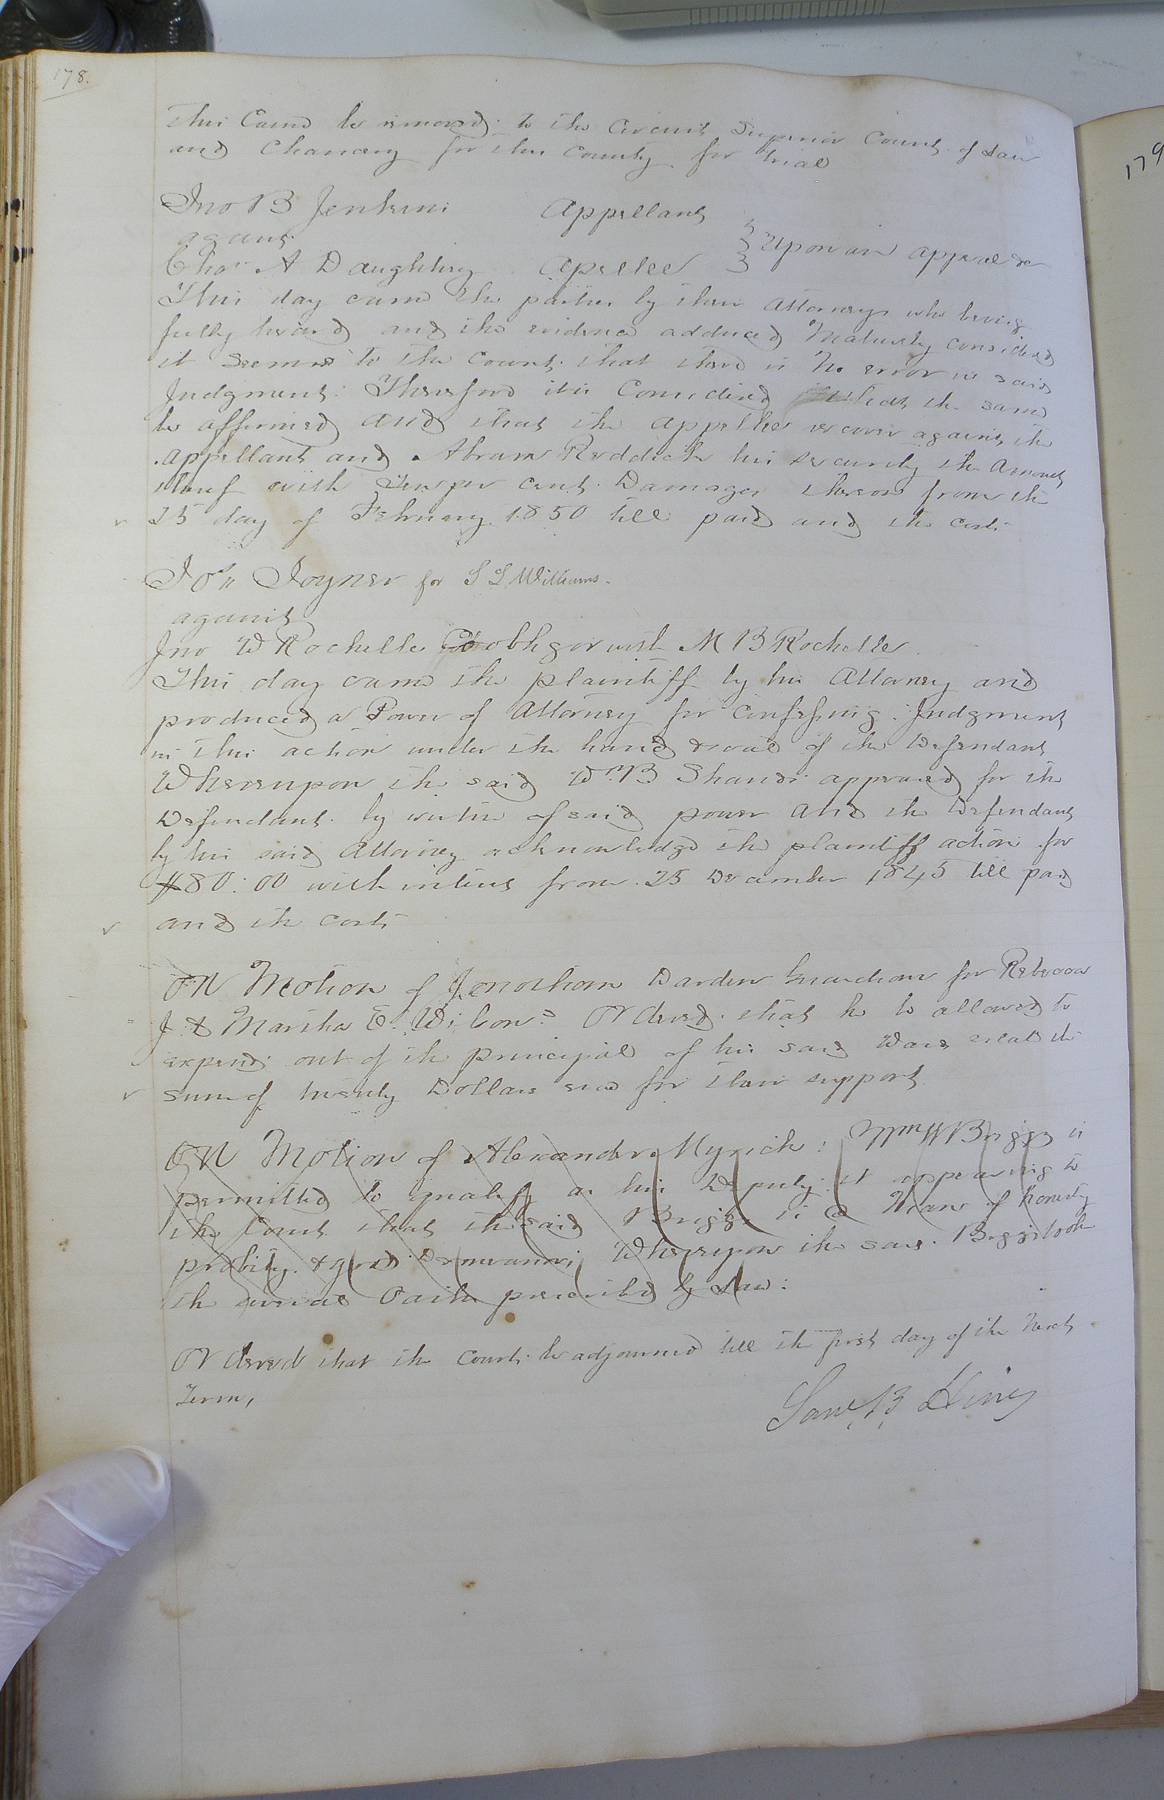 178.
this Cause be removed to the Circuit Superior Court of Law
and Chancery for this County for trial
Jno B Jenkins Appellant
against
Chas A Daughtrey Apellee } Upon an appeal &c
This day came the parties by their Attorneys who being
fully heard and the evidence adduced Maturely considered
it seems to the Court that there is No error in said
Judgment: Therefore it is Considered that the same
be affirmed and that the Appellee recover against the
Appellant and Abram Reddick his security the Amount
thereof with Ten per cent Damages thereon from the
25 day of February 1850 till paid and the costs
Jos Joyner for S L Williams.
against
Jno W Rochelle Co obligor with M B Rochelle
This day came the plaintiff by his Attorney and
produced a Power of Attorney for Confessing Judgment
in this action under the hand & seal of the Defendant
Whereupon the said Wm B Shands appeared for the
Defendant by virtue of said power And the Defendant
by his said Attorney acknowledge the plaintiff action for
$80:00 with interest from 25 December 1845 till paid
and the costs
ON Motion of Jonathan Darden Guardian for Rebecca
J & Martha E. Ordered that he be allowed to
expend out of the principal of his said Wards estate the
sum of twenty Dollars each for their support
ON Motion of Alexander Myrick: Wm W Briggs is
permitted to qualify as his Deputy it appearing to
the Court that the said Briggs is a Man of honesty
probity & good Demeanor; Whereupon the said Briggs took
the several Oaths prescribed by Law:
Ordered that the Court be adjourned till the first day of the Next
Term,
Saml B Hines
179